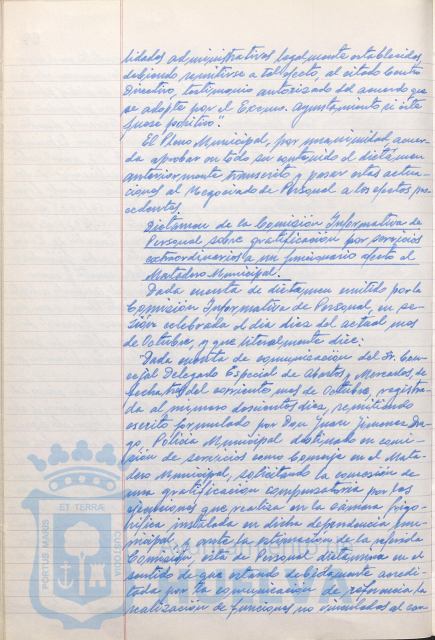 lidades administrativas legalmente establecidas,
debiendo remitirse a tal efecto, al citado Centro
Directivo, testimonio autorizado del acuerdo que
se adopte por el Excmo. Ayuntamiento si éste
fuese positivo".
El Pleno Municipal, por unanimidad, acuer-
da aprobar en todo su contenido el dictamen
anteriormente transcrito y pasar estas actua-
ciones al Negociado de Personal a los efectos pro-
cedentes.
Dictamen de la Comisión Informativa de
Personal sobre gratificación por servicios
extraordinarios a un funcionario afecto al
Matadero Municipal.
Dada cuenta de dictamen emitido por la
Comisión Informativa de Personal, en se-
sión celebrada el día diez del actual mes
de Octubre, y que literalmente dice:
"Dada cuenta de comunicación del Sr. Con-
cejal Delegado Especial de Abastos y Mercados, de
fecha tres del corriente mes de Octubre, registra-
da al número doscientos diez, remitiendo
escrito formulado por Don Juan Jimenez
Policia Municipal destinado en comi-
sión de servicios como Conserje en el Mata-
dero Municipal, solicitando la concesión de
una gratificación compensatoria por las
funciones que realiza en la cámara frigo-
rífica instalada en dicha dependencia mu-
nicipal, y ante la estimación de la referida
Comisión, esta de Personal dictamina en el
sentido de que estando debidamente acredi-
tada por la comunicación de referencia la
realización de funciones no vinculadas al car-
PORTUS MARIS
ET TERRÆ
CUSTODIA